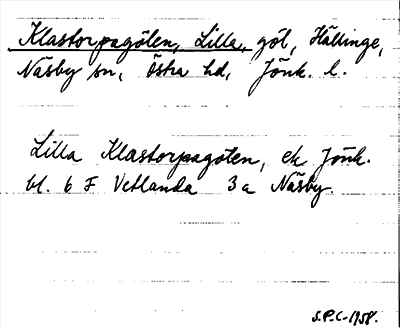 Klastorpagölen, Lilla, göl, Hällinge,
Näsby sn, Östra hd, Jönk. l.
Lilla Klastorpagölen, ek Jönk.
bl. 6 F Vetlanda 3a Näsby.
S.P.C-1958.